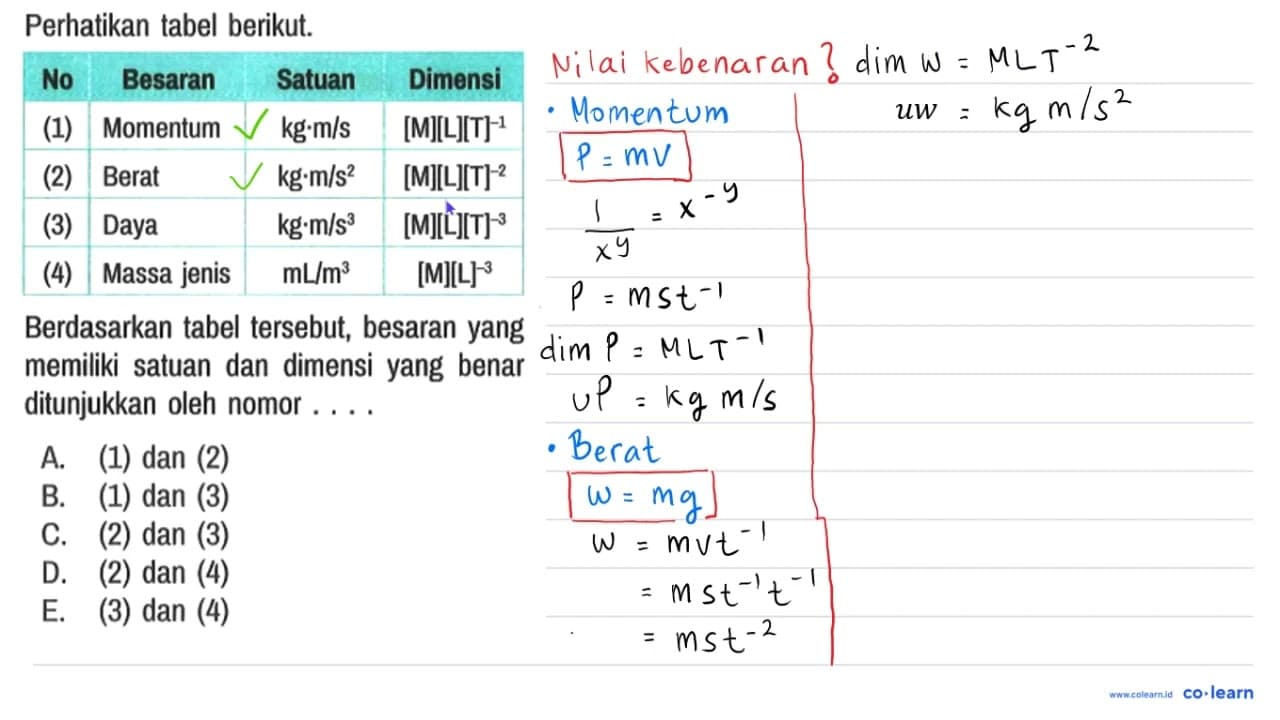 Perhatikan tabel berikut.
No Besaran Satuan Dimensi
(1) Momentum ✓ kg·m/s [M][L][T]⁻¹
(2) Berat ✓ kg·m/s² [M][L][T]⁻²
(3) Daya kg·m/s³ [M][L][T]⁻³
(4) Massa jenis mL/m³ [M][L]⁻³
Berdasarkan tabel tersebut, besaran yang
memiliki satuan dan dimensi yang benar
ditunjukkan oleh nomor . . . .
A. (1) dan (2)
B. (1) dan (3)
C. (2) dan (3)
D. (2) dan (4)
E. (3) dan (4)
Nilai kebenaran?
• Momentum
P = mv
1/xy = x⁻y
P = mst⁻¹
dim P = MLT⁻¹
uP = kg m/s
• Berat
w = mg
w = mvt⁻¹
= mst⁻¹t⁻¹
= mst⁻²
dim w = MLT⁻²
uw = kg m/s²
www.colearn.id co·learn